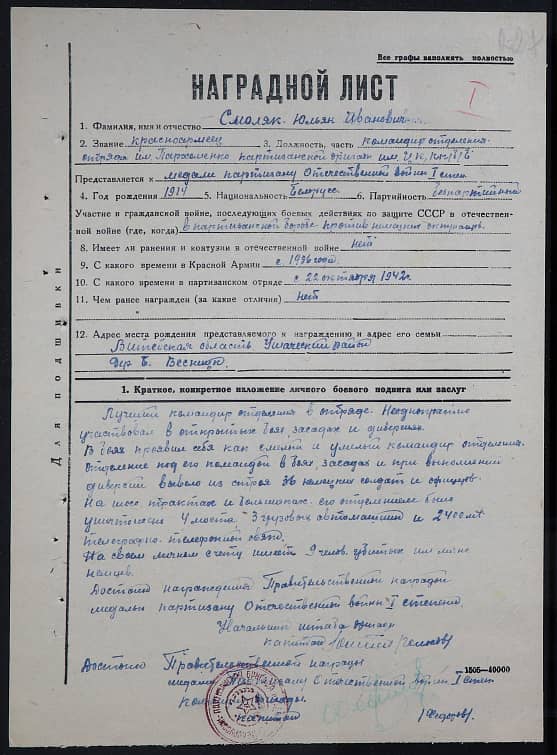 Все графы наполнять полностью
НАГРАДНОЙ ЛИСТ
I
1. Фамилия, имя и отчество Смоляк Юльян Иванович
2. Звание красноармеец 3. Должность, часть командир отделения
отряда им. Пархоменко партизанской бригады им. ЦК КП(б)Б
Представляется к медали партизану Отечественной войны I степ.
4. Год рождения 1914 5. Национальность Белорусс 6. Партийность беспартийный
Участие в гражданской войне, последующих боевых действиях по защите СССР в отечествен-
ной войне (где, когда) в партизанской борьбе против немецких оккупантов.
8. Имеет ли ранения и контузии в отечественной войне нет
9. С какого времени в Красной Армии с 1936 года
10. С какого времени в партизанском отряде с 22 октября 1942 г.
11. Чем ранее награжден (за какие отличия) нет
12. Адрес места рождения представляемого к награждению и адрес его семьи
Витебская область Ушачский район
дер. Б. Весницк
Для подшивки
1. Краткое, конкретное изложение личного боевого подвига или заслуг
Лучший командир отделения в отряде. Неоднократно
участвовал в открытых боях, засадах и диверсиях.
В боях проявил себя как смелый и умелый командир отделения.
Отделение под его командой в боях, засадах и при выполнении
диверсий вывело из строя 36 немецких солдат и офицеров.
На шоссе, трактах и большаках его отделением было
уничтожено 4 моста, 3 грузовых автомашины и 2400 мт
телеграфно-телефонной связи.
На своем личном счету имеет 9 челов. убитых им лично
немцев.
Достоин награждения Правительственной наградой
медалью партизану Отечественной войны I степени.
Начальник штаба бригады
капитан
Достоин Правительственной награды
медали Партизану Отечественной войны I степени
Командир бригады
капитан (Федоров)
1505—40000